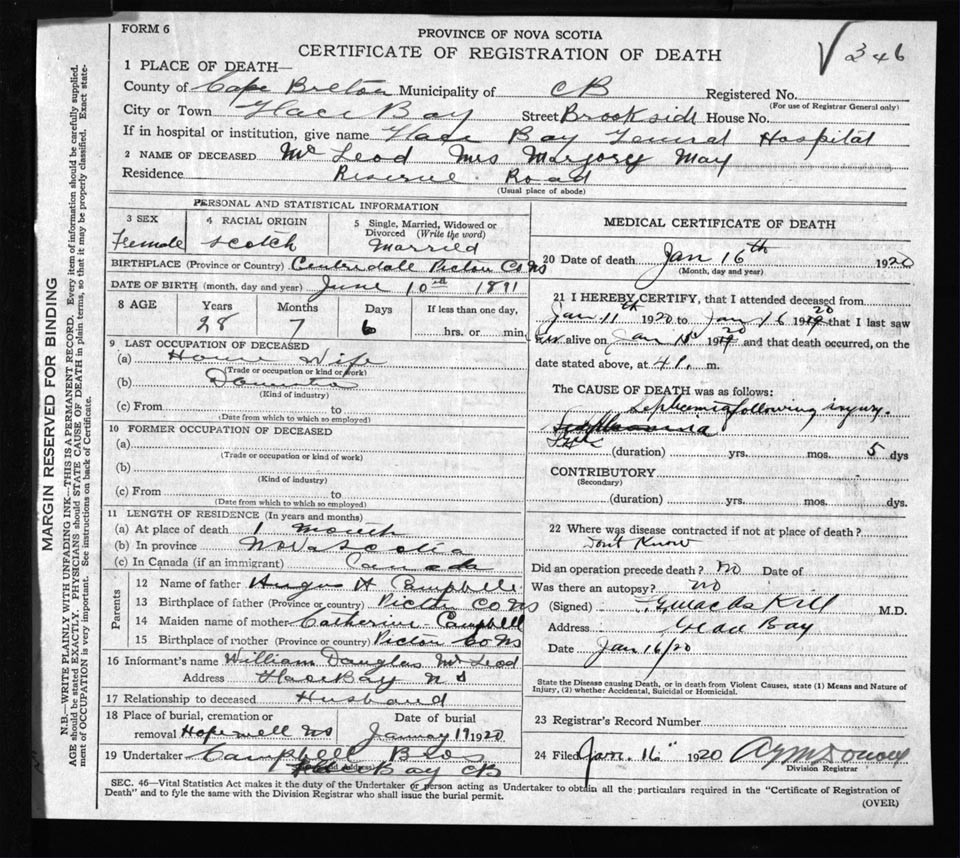 FORM 6
PROVINCE OF NOVA SCOTIA
CERTIFICATE OF REGISTRATION OF DEATH
√ 346
1 PLACE OF DEATH—
County of Cape Breton Municipality of CB Registered No.
(For use of Registrar General only)
City or Town Glace Bay Street Brookside House No.
If in hospital or institution, give name Glace Bay General Hospital
2 NAME OF DECEASED Mc Leod Mrs Marjory May
Residence Reserve Road
(Usual place of abode)
PERSONAL AND STATISTICAL INFORMATION
3 SEX Female
4 RACIAL ORIGIN Scotch
5 Single, Married, Widowed or Divorced (Write the word) Married
BIRTHPLACE (Province or Country) Centredale Pictou Co NS
DATE OF BIRTH (month, day and year) June 10 1891
8 AGE Years Months Days If less than one day,
28 7 6 hrs. or min.
9 LAST OCCUPATION OF DECEASED
(a) House Wife
(Trade or occupation or kind of work)
(b) Domestic
(Kind of industry)
(c) From to
(Date from which to which so employed)
10 FORMER OCCUPATION OF DECEASED
(a)
(Trade or occupation or kind of work)
(b)
(Kind of industry)
(c) From to
(Date from which to which so employed)
11 LENGTH OF RESIDENCE (In years and months)
(a) At place of death 1 month
(b) In province Nova Scotia
(c) In Canada (if an immigrant) Canada
Parents
12 Name of father Angus H Campbell
13 Birthplace of father (Province or country) Pictou Co NS
14 Maiden name of mother Catherine Campbell
15 Birthplace of mother (Province or country) Pictou Co NS
16 Informant's name William Douglas Mc Leod
Address Glace Bay N S
17 Relationship to deceased Husband
18 Place of burial, cremation or removal Hopewell NS
Date of burial January 19 1920
19 Undertaker Campbell Bros
Glace Bay CB
MEDICAL CERTIFICATE OF DEATH
20 Date of death Jan 16th 1920
(Month, day and year)
21 I HEREBY CERTIFY, that I attended deceased from
Jan 11th 1920 to Jan 16 1920 that I last saw
her alive on Jan 1920 and that death occurred, on the
date stated above, at m.
The CAUSE OF DEATH was as follows:
Septicemia following injury.
(duration) yrs. mos. 5 dys
CONTRIBUTORY
(Secondary)
(duration) yrs. mos. dys.
22 Where was disease contracted if not at place of death?
Don't Know
Did an operation precede death? No Date of
Was there an autopsy? No
(Signed) M.D.
Address Glace Bay
Date Jan 16/20
State the Disease causing Death, or in death from Violent Causes, state (1) Means and Nature of
Injury, (2) whether Accidental, Suicidal or Homicidal.
23 Registrar's Record Number
24 Filed Jan. 16" 1920
Division Registrar
SEC. 46—Vital Statistics Act makes it the duty of the Undertaker or person acting as Undertaker to obtain all the particulars required in the "Certificate of Registration of
Death" and to fyle the same with the Division Registrar who shall issue the burial permit.
(OVER)
MARGIN RESERVED FOR BINDING
N.B.—WRITE PLAINLY WITH UNFADING INK—THIS IS A PERMANENT RECORD. Every item of information should be carefully supplied.
AGE should be stated EXACTLY. PHYSICIANS should STATE CAUSE OF DEATH in plain terms, so that it may be properly classified. Exact statement of OCCUPATION is very important. See instructions on back of Certificate.